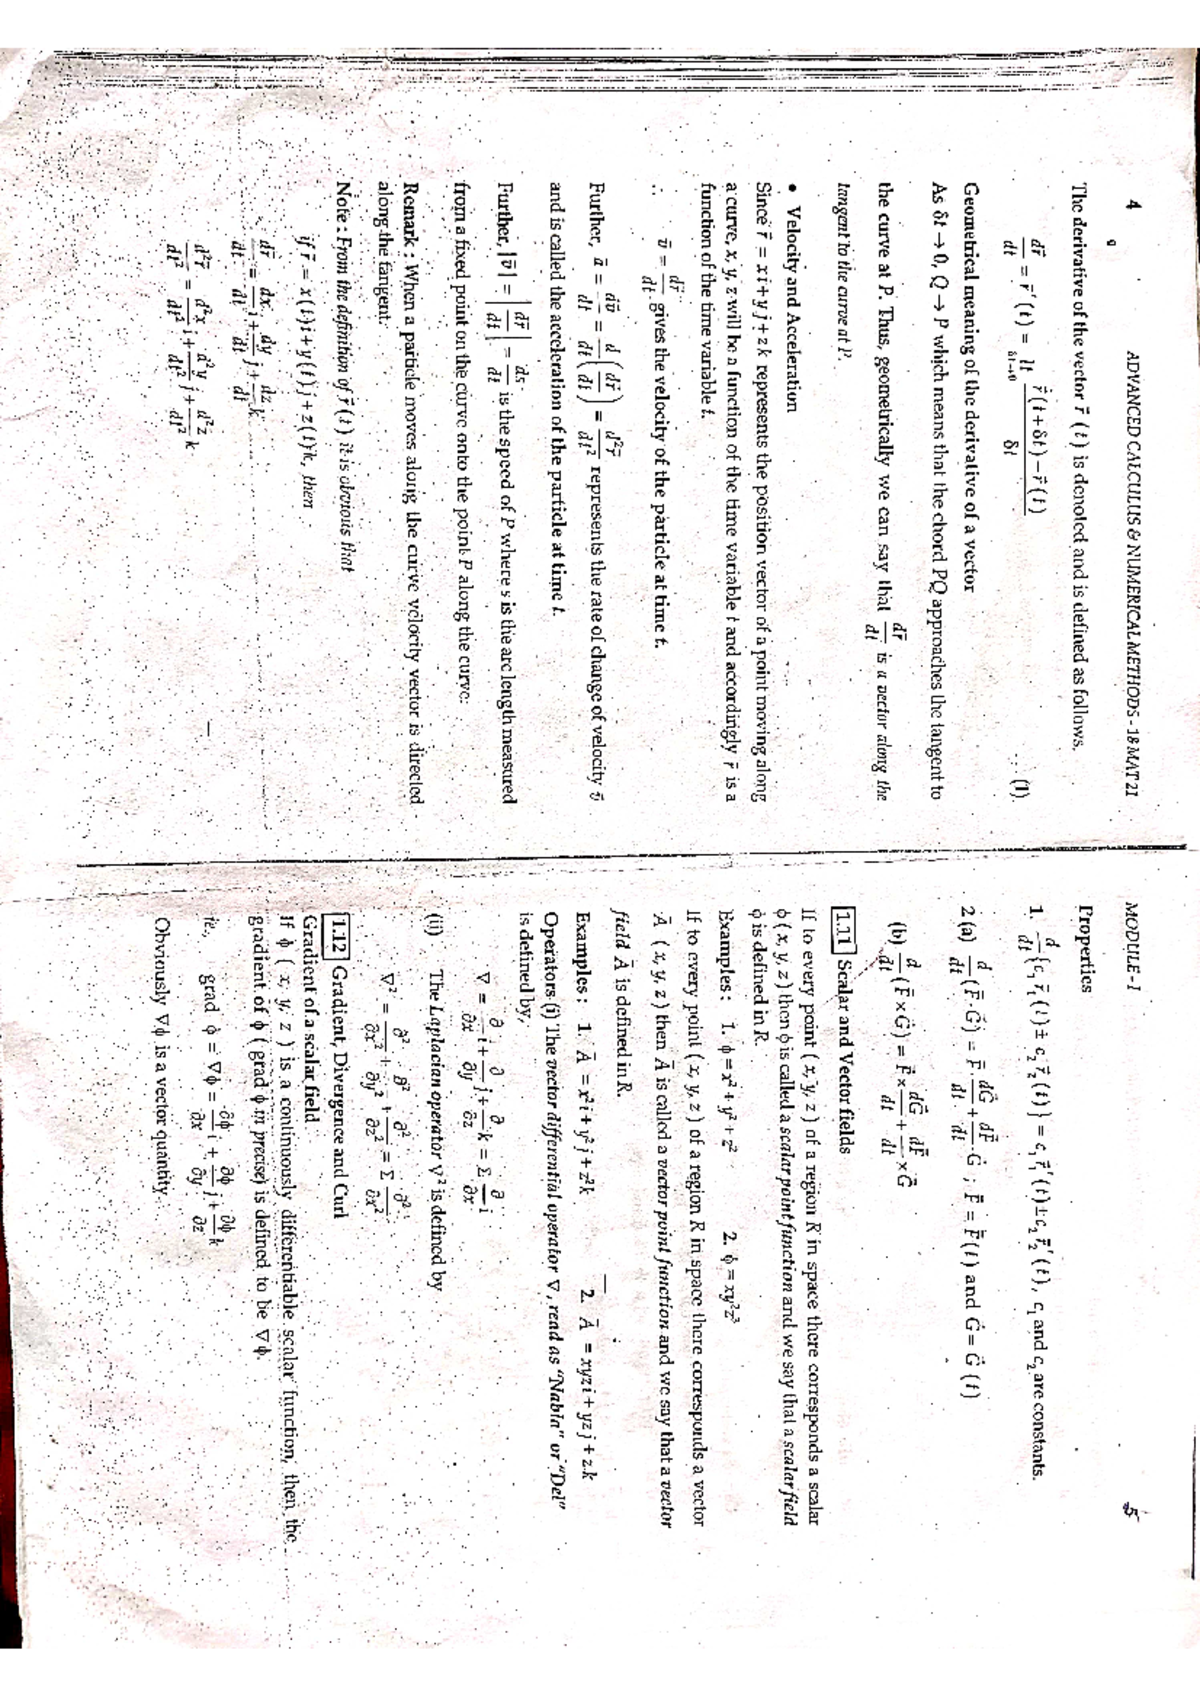 4 ADVANCED CALCULUS & NUMERICAL METHODS - 18 MAT 21
The derivative of the vector r⃗ (t) is denoted and is defined as follows.
dr⃗/dt = r⃗′(t) = lt δt→0 [r⃗(t+δt) − r⃗(t)]/δt ... (1)
Geometrical meaning of the derivative of a vector
As δt → 0, Q → P which means that the chord PQ approaches the tangent to
the curve at P. Thus, geometrically we can say that dr⃗/dt is a vector along the
tangent to the curve at P.
• Velocity and Acceleration
Since r⃗ = x i + y j + z k represents the position vector of a point moving along
a curve, x, y, z will be a function of the time variable t and accordingly r⃗ is a
function of the time variable t.
∴ v⃗ = dr⃗/dt gives the velocity of the particle at time t.
Further, a⃗ = dv⃗/dt = d/dt (dr⃗/dt) = d²r⃗/dt² represents the rate of change of velocity v⃗
and is called the acceleration of the particle at time t.
Further, |v⃗| = |dr⃗/dt| = ds/dt is the speed of P where s is the arc length measured
from a fixed point on the curve onto the point P along the curve.
Remark : When a particle moves along the curve velocity vector is directed
along the tangent.
Note : From the definition of r⃗′(t) it is obvious that
if r⃗ = x(t) i + y(t) j + z(t) k, then
dr⃗/dt = dx/dt i + dy/dt j + dz/dt k
d²r⃗/dt² = d²x/dt² i + d²y/dt² j + d²z/dt² k
MODULE - 1 5
Properties
1. d/dt {c₁ r⃗₁(t) ± c₂ r⃗₂(t)} = c₁ r⃗₁′(t) ± c₂ r⃗₂′(t), c₁ and c₂ are constants.
2 (a) d/dt (F⃗·G⃗) = F⃗·dG⃗/dt + dF⃗/dt·G⃗ ; F⃗ = F⃗(t) and G⃗ = G⃗(t)
(b) d/dt (F⃗×G⃗) = F⃗×dG⃗/dt + dF⃗/dt×G⃗
1.11 Scalar and Vector fields
If to every point (x, y, z) of a region R in space there corresponds a scalar
φ(x, y, z) then φ is called a scalar point function and we say that a scalar field
φ is defined in R.
Examples : 1. φ = x² + y² + z² 2. φ = xy²z³
If to every point (x, y, z) of a region R in space there corresponds a vector
A⃗ (x, y, z) then A⃗ is called a vector point function and we say that a vector
field A⃗ is defined in R.
Examples : 1. A⃗ = x² i + y² j + z² k 2. A⃗ = xyz i + yz j + z k
Operators (i) The vector differential operator ∇, read as "Nabla" or "Del"
is defined by,
∇ = ∂/∂x i + ∂/∂y j + ∂/∂z k = Σ ∂/∂x i
(ii) The Laplacian operator ∇² is defined by
∇² = ∂²/∂x² + ∂²/∂y² + ∂²/∂z² = Σ ∂²/∂x²
1.12 Gradient, Divergence and Curl
Gradient of a scalar field
If φ (x, y, z) is a continuously differentiable scalar function, then the
gradient of φ (grad φ in precise) is defined to be ∇φ.
ie., grad φ = ∇φ = ∂φ/∂x i + ∂φ/∂y j + ∂φ/∂z k
Obviously ∇φ is a vector quantity.